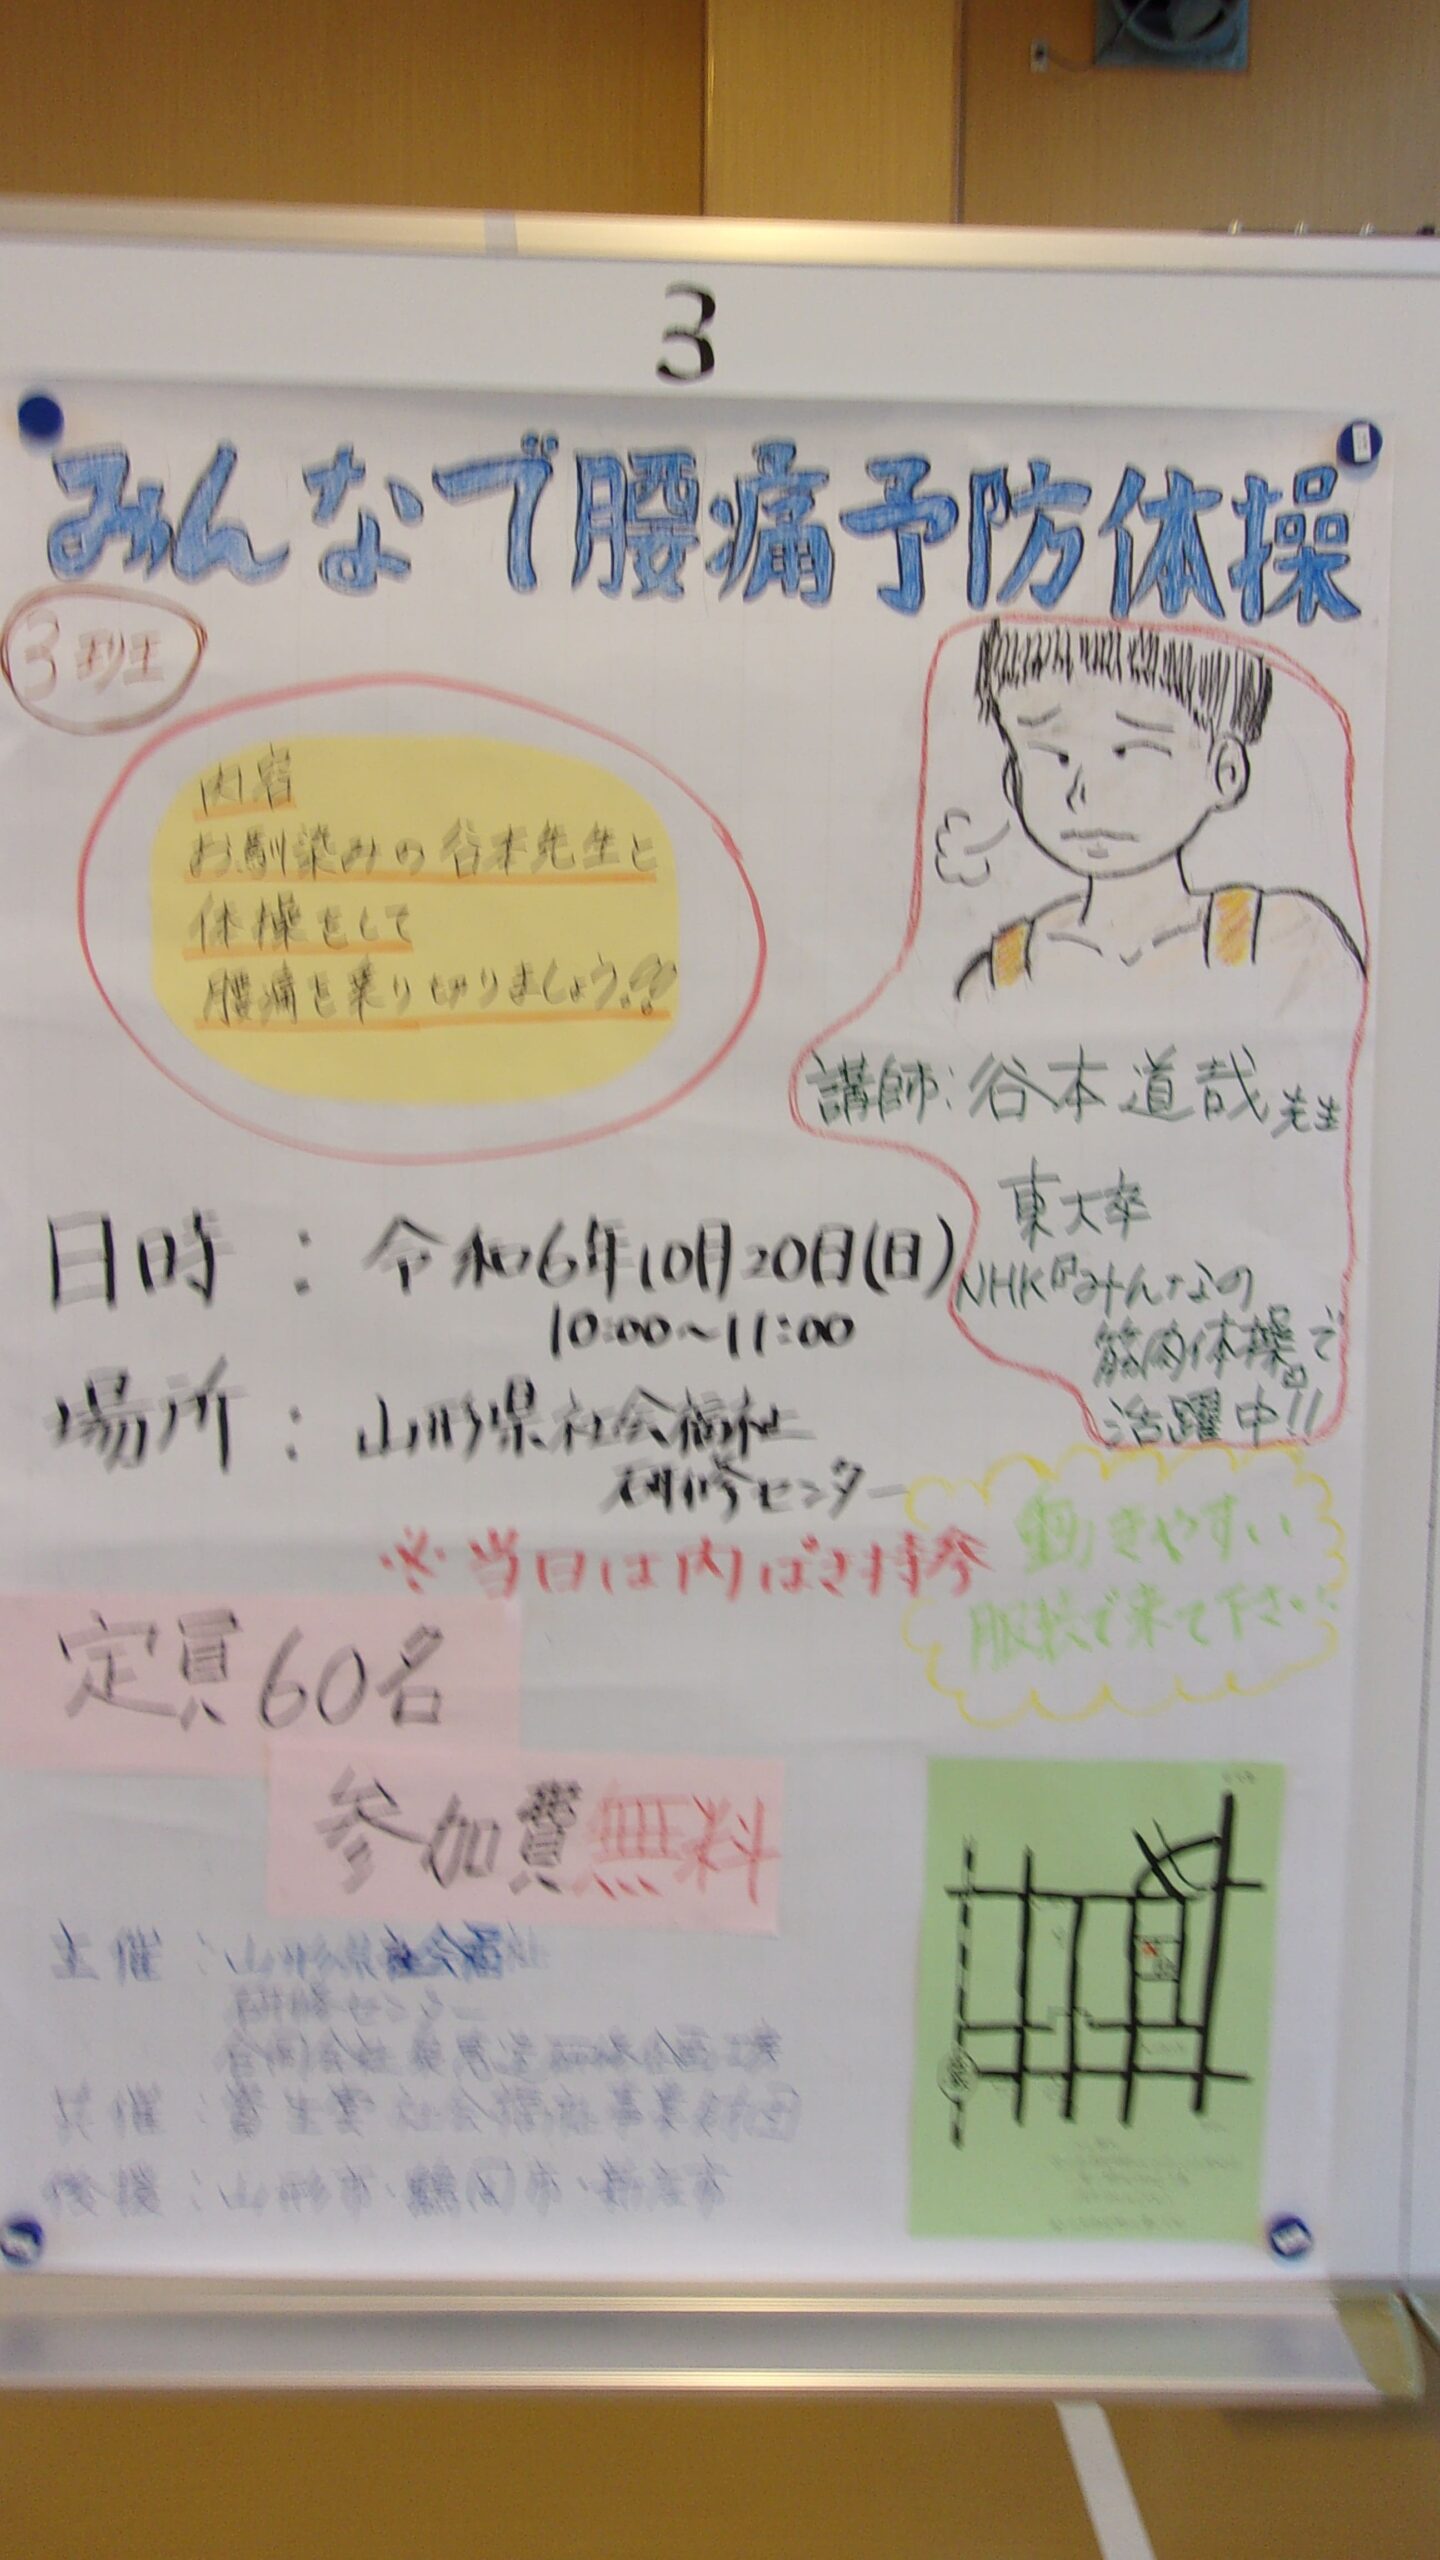 3
みんなで腰痛予防体操
3班
内容
お馴染みの谷本先生と
体操をして
腰痛を乗り切りましょう!?
講師:谷本道哉先生
東大卒
NHK『みんなの
筋肉体操』で
活躍中!!
日時:令和6年10月20日(日)
10:00~11:00
場所:山形県社会福祉
研修センター
※当日は内ばき持参
動きやすい
服装で来て下さい
定員60名
参加費無料
主催:
共催:
後援: